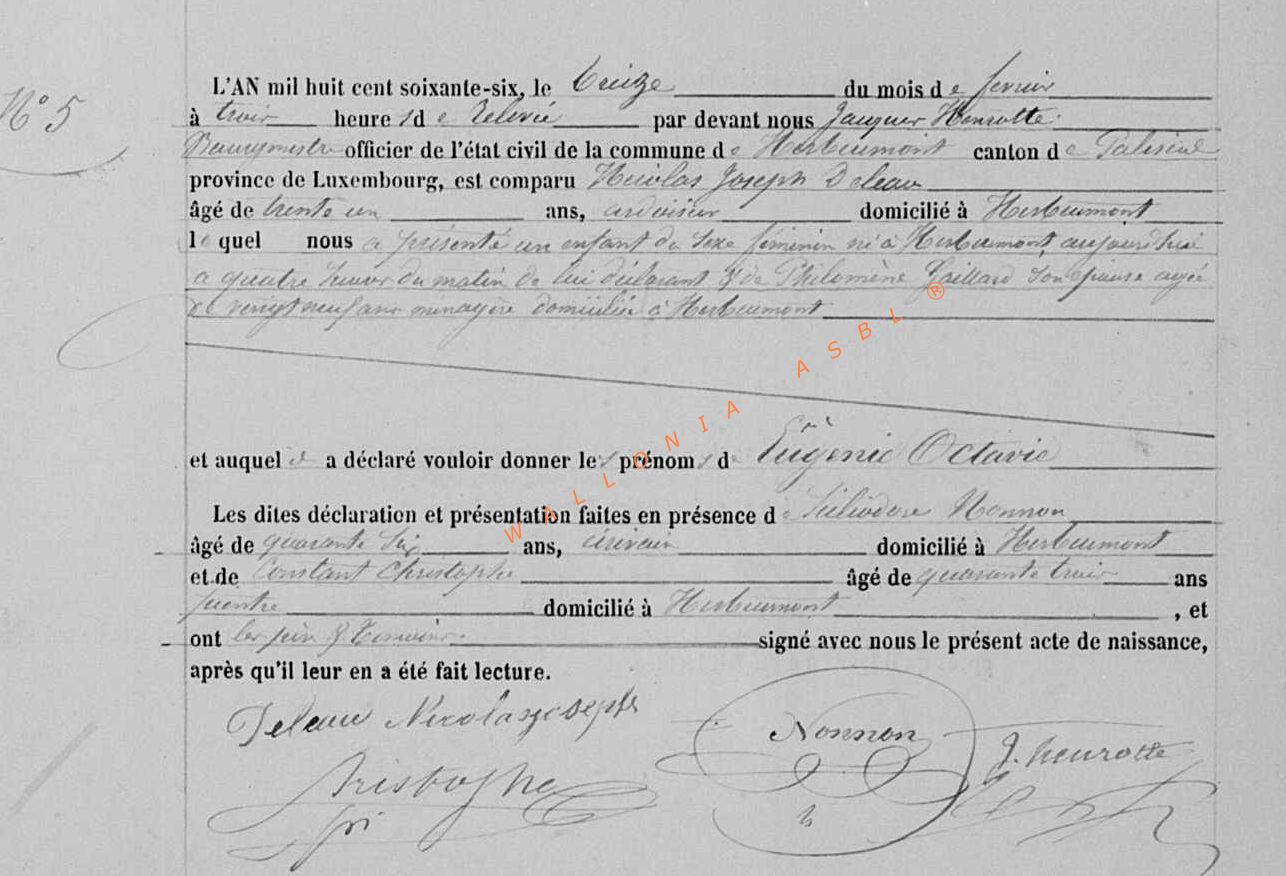 N° 5
L'AN mil huit cent soixante-six, le treize du mois de fevrier
à trois heures de relevée par devant nous Jacques Henrotte
Bourgmestre officier de l'état civil de la commune de Herbeumont canton de Paliseul
province de Luxembourg, est comparu Nicolas Joseph Deleau
âgé de trente un ans, ardoisier domicilié à Herbeumont
lequel nous a présenté un enfant du sexe féminin né à Herbeumont, aujourd'hui
a quatre heures du matin de lui déclarant & de Philomène Gaillard son épouse agée
de vingt neuf ans ménagère domiciliée à Herbeumont
et auquel il a déclaré vouloir donner les prénoms d Eugénie Octavie
Les dites déclaration et présentation faites en présence de Héliodore Nonnon
âgé de quarante six ans, écrivain domicilié à Herbeumont
et de Constant Christophe âgé de quarante trois ans
peintre domicilié à Herbeumont, et
ont les père & témoins signé avec nous le présent acte de naissance,
après qu'il leur en a été fait lecture.
Deleau Nicolas joseph
Nonnon
J. henrotte
WALLONIA ASBL ®